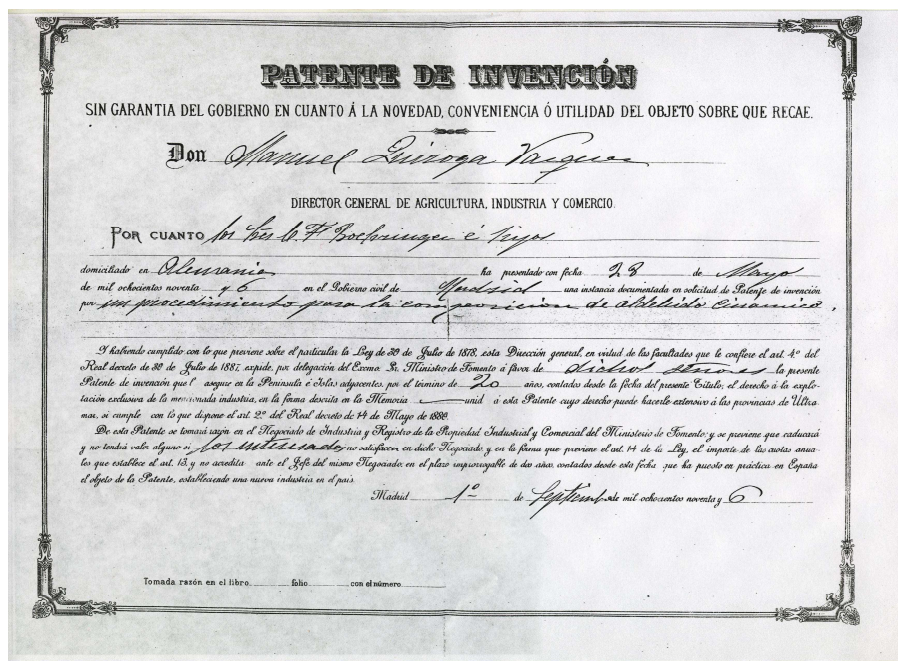 PATENTE DE INVENCIÓN
SIN GARANTIA DEL GOBIERNO EN CUANTO Á LA NOVEDAD, CONVENIENCIA Ó UTILIDAD DEL OBJETO SOBRE QUE RECAE.
Don Manuel Quiroga Vazquez
DIRECTOR GENERAL DE AGRICULTURA, INDUSTRIA Y COMERCIO.
POR CUANTO los Sres C. F. Boehringer é hijos
domiciliado en Alemania ha presentado con fecha 28 de Mayo
de mil ochocientos noventa y 6 en el Gobierno civil de Madrid una instancia documentada en solicitud de Patente de invención
por un procedimiento para la composición de aldehido cinamico.
Y habiendo cumplido con lo que previene sobre el particular la Ley de 30 de Julio de 1878, esta Dirección general, en virtud de las facultades que le confiere el art. 4.º del
Real decreto de 30 de Julio de 1887, expide, por delegación del Excmo. Sr. Ministro de Fomento á favor de dichos señores la presente
Patente de invención que l asegure en la Península é Islas adyacentes, por el término de 20 años, contados desde la fecha del presente Título, el derecho á la explo-
tación exclusiva de la mencionada industria, en la forma descrita en la Memoria unid á esta Patente cuyo derecho puede hacerle extensivo á las provincias de Ultra
mar, si cumple con lo que dispone el art. 2.º del Real decreto de 14 de Mayo de 1880.
De esta Patente se tomará razón en el Negociado de Industria y Registro de la Propiedad Industrial y Comercial del Ministerio de Fomento; y se previene que caducará
y no tendrá valor alguno si los interesados no satisfacen en dicho Negociado y en la forma que previene el art. 14 de la Ley, el importe de las cuotas anua-
les que establece el art. 13, y no acredita ante el Jefe del mismo Negociado, en el plazo improrrogable de dos años, contados desde esta fecha, que ha puesto en práctica en España
el objeto de la Patente, estableciendo una nueva industria en el país.
Madrid 1º de Septiembre de mil ochocientos noventa y 6
Tomada razón en el libro folio con el número